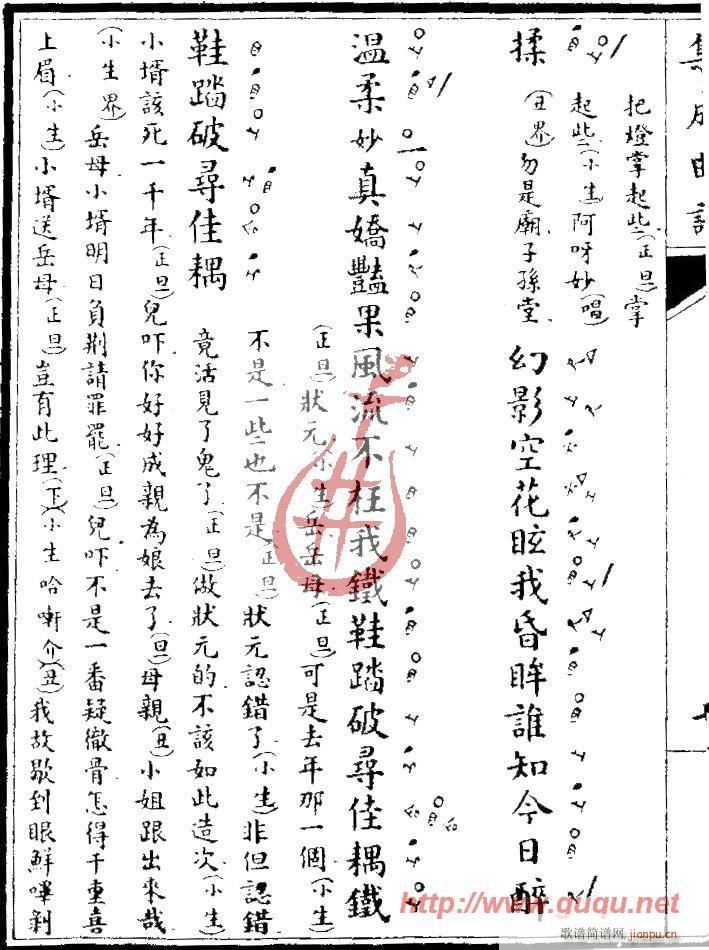 集成曲譜
把燈掌起些(正旦)掌
起些(小生)阿呀妙(唱)幻影空花眩我昏眸誰知今日醉
揉(丑界)勿是廟子孫堂
溫柔妙真嬌豔果風流不枉我鐵鞋踏破尋佳耦鐵
鞋踏破尋佳耦(正旦)狀元(小生)岳岳母(正旦)可是去年那一個(小生)
不是一些也不是(正旦)狀元認錯了(小生)非但認錯
竟活見了鬼了(正旦)做狀元的不該如此造次(小生)
小壻該死一千年(正旦)兒吓你好好成親為娘去了(旦)母親(丑)小姐跟出來哉
(小生界)岳母小壻明日負荆請罪罷(正旦)兒吓不是一番疑徹骨怎得千重喜
上眉(小生)小壻送岳母(正旦)豈有此理(下)(小生哈嘶介)(丑)我故歇到眼鮮嗶剝
http://www.guqu.net
歌谱简谱网
jianpu.cn